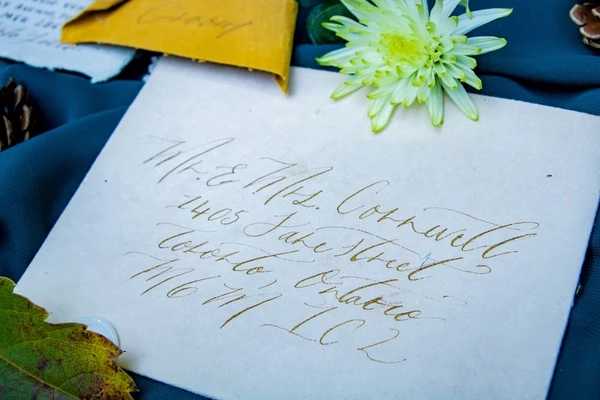 Mr. & Mrs. Cornwell
1405 Jane Street
Toronto, Ontario
M6M 1C2